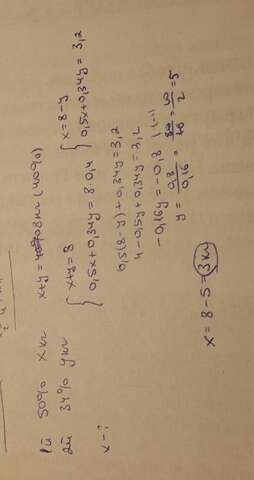 1й 50% x кг
2й 34% y кг
x+y = 8 кг (40%)
x - ?
{ x+y=8
0,5x+0,34y = 8·0,4
{ x=8-y
0,5x+0,34y = 3,2
0,5(8-y)+0,34y=3,2
4-0,5y+0,34y=3,2
-0,16y=-0,8 |(-1)
y = 0,8/0,16 = 80/16 = 10/2 = 5
x = 8-5=3 кг